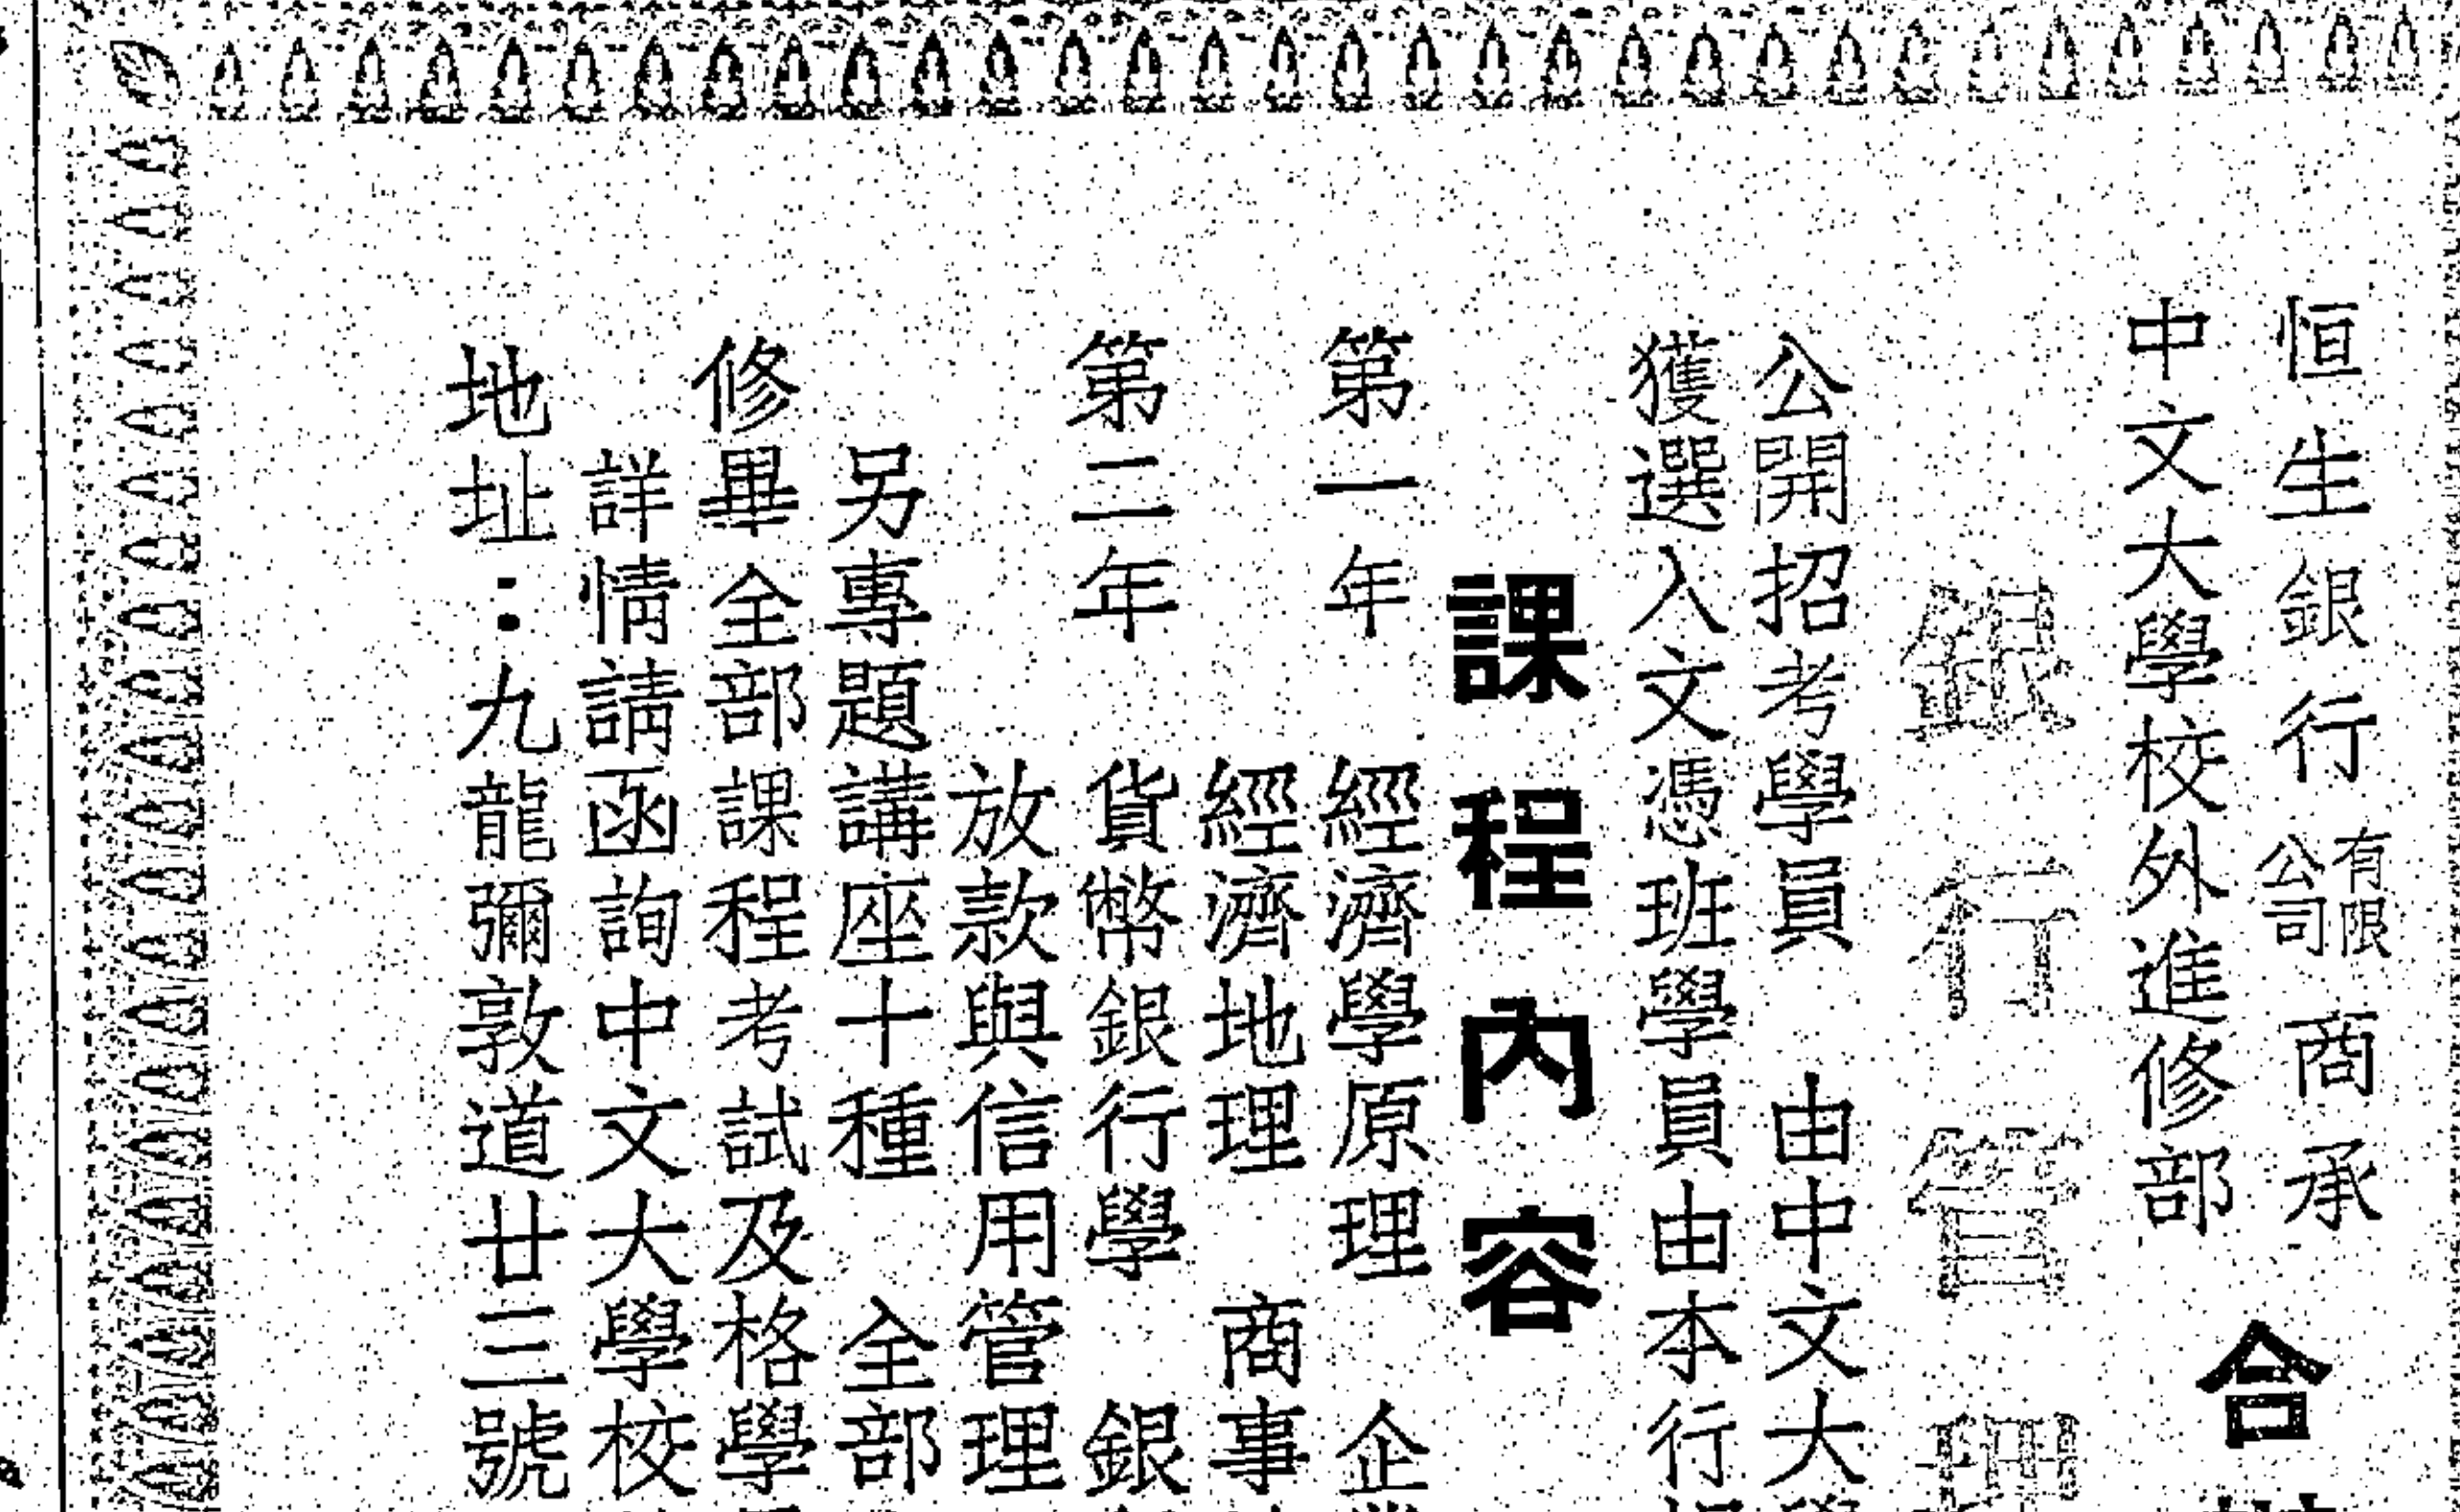 恒生銀行有限公司商承
中文大學校外進修部
合
銀行管理
公開招考學員　由中文大
獲選入文憑班學員由本行
課程內容
第一年　經濟學原理　企
經濟地理　商事
第二年　貨幣銀行學　銀
放款與信用管理
另專題講座十種　全部
修畢全部課程考試及格學
詳情請函詢中文大學校
地址：九龍彌敦道廿三號